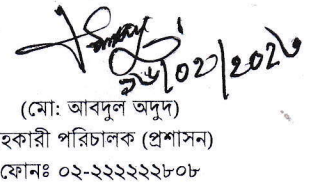 (মো: আবদুল অদুদ)
হকারী পরিচালক (প্রশাসন)
ফোনঃ ০২-২২২২২২৮০৮